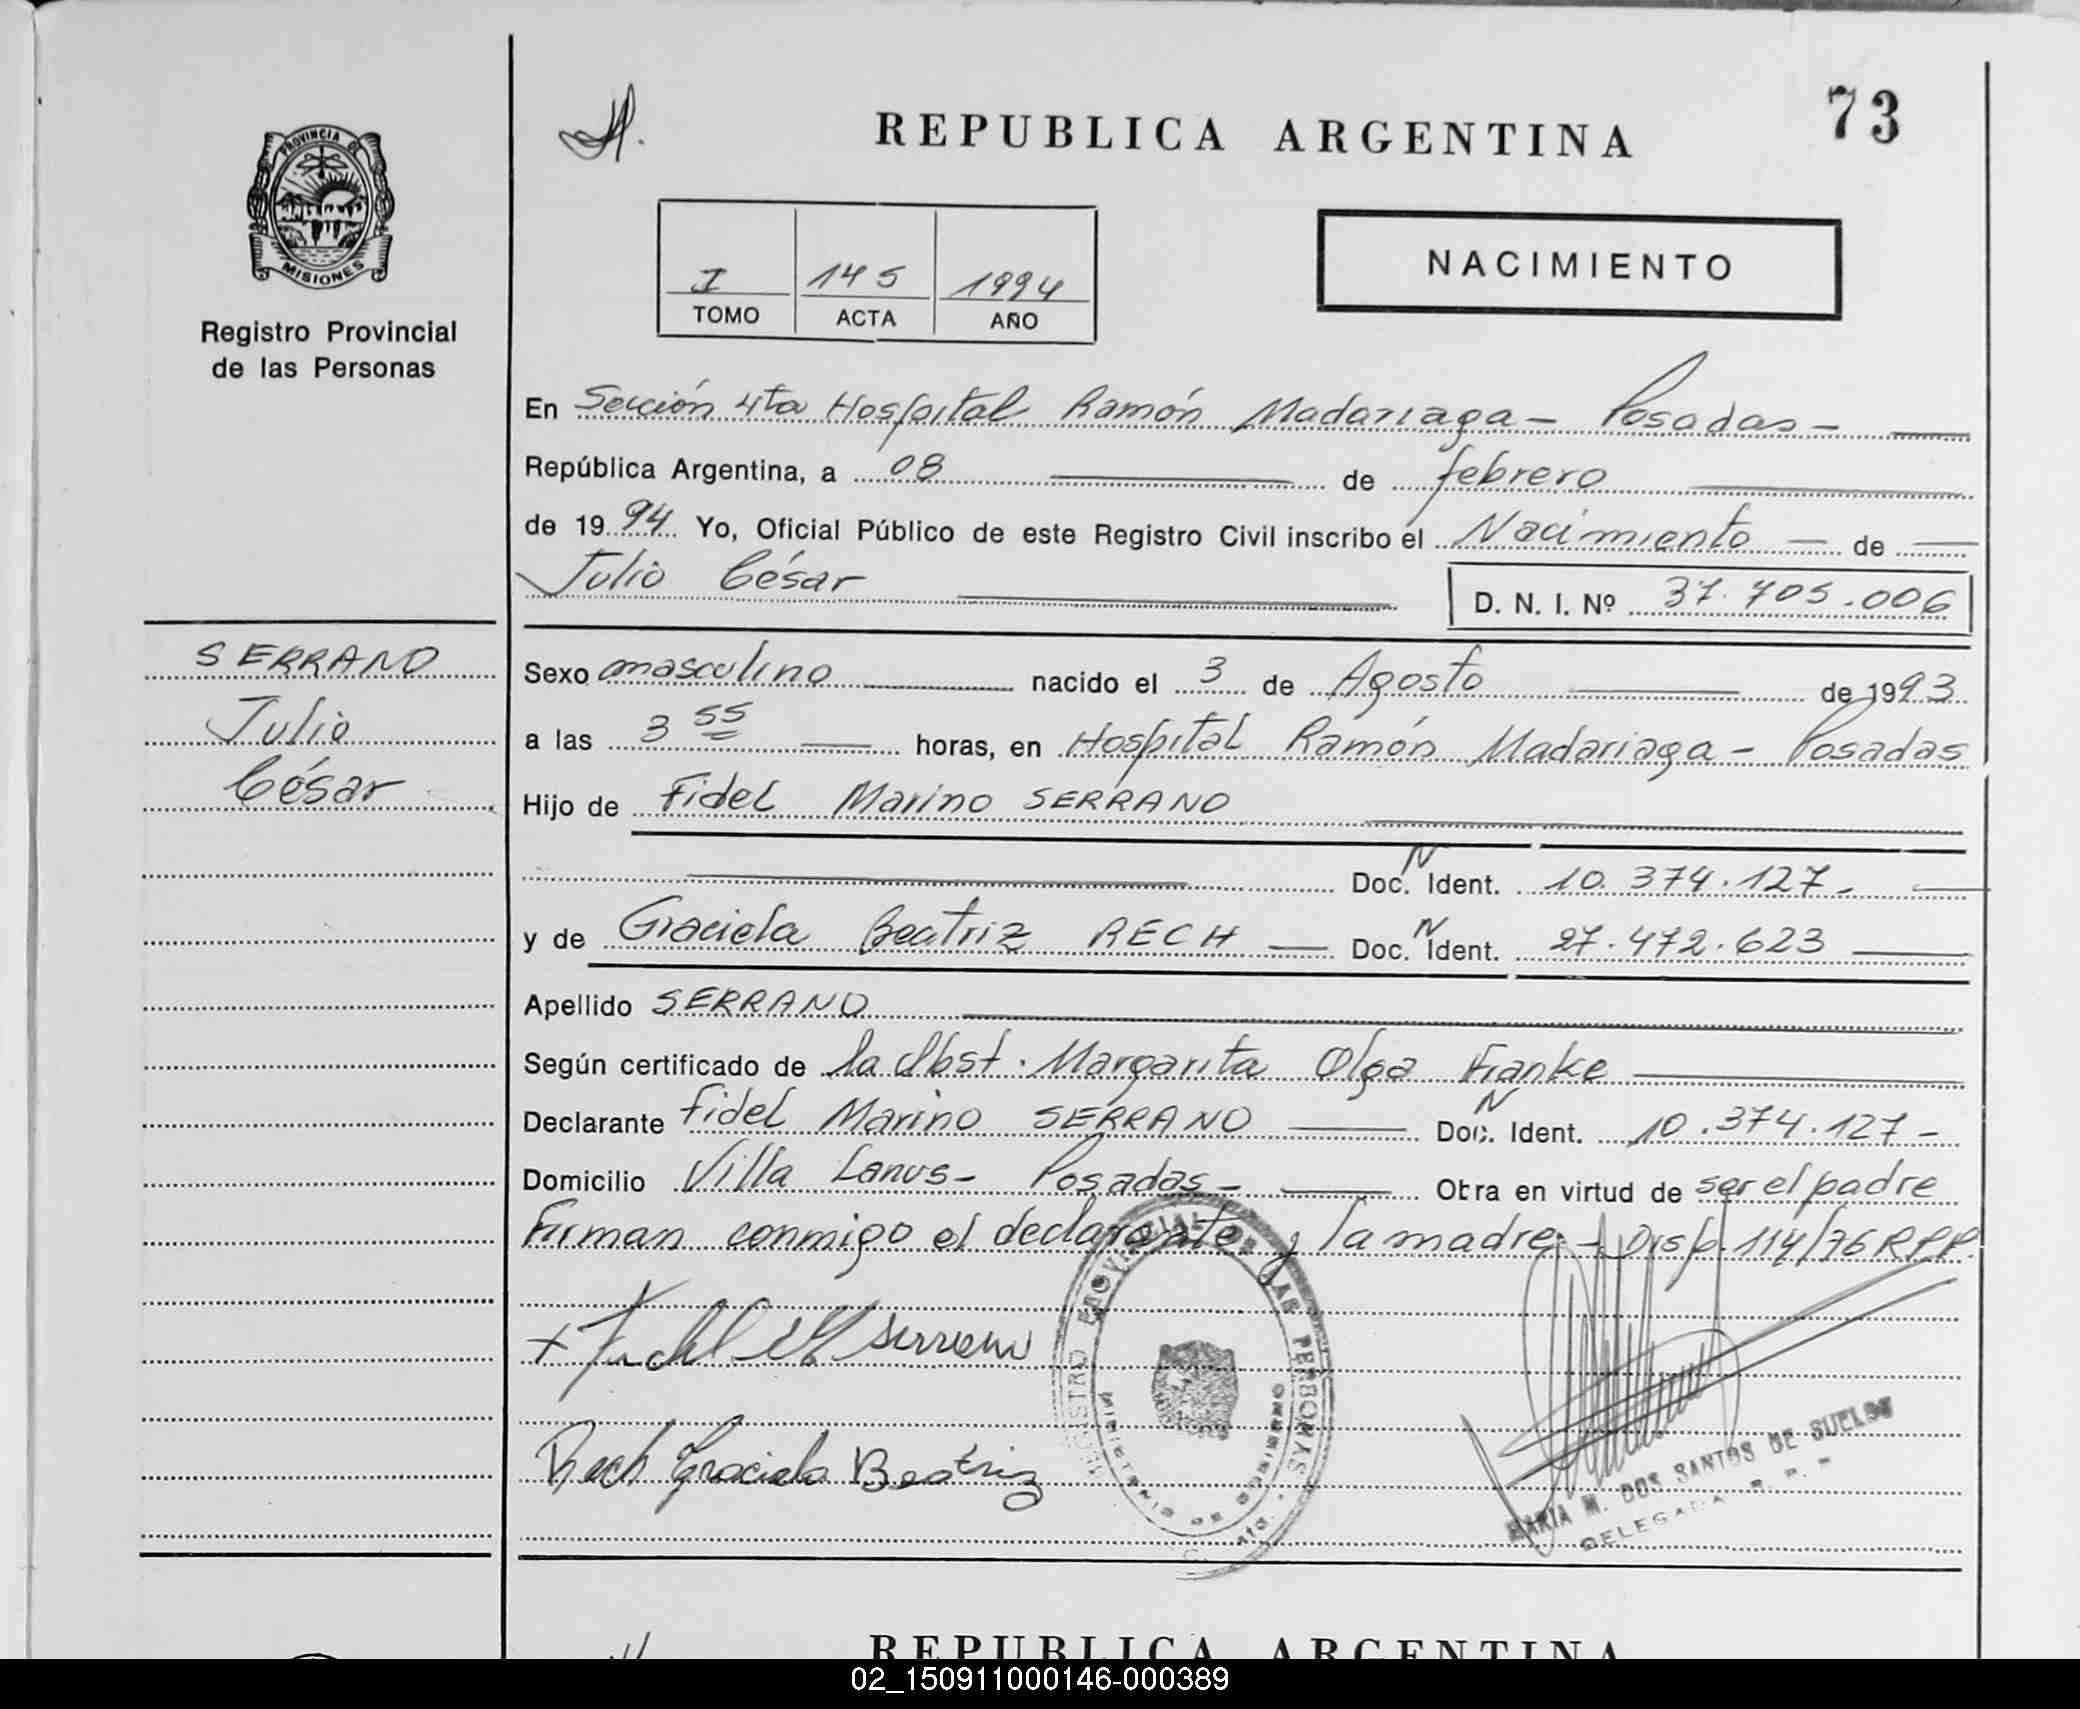 PROVINCIA DE
MISIONES
Registro Provincial
de las Personas
SERRANO
Julio
César
REPUBLICA ARGENTINA
73
I 145 1994
TOMO ACTA AÑO
NACIMIENTO
En Sección 4ta Hospital Ramón Madariaga - Posadas -
República Argentina, a 08 de febrero
de 1994 Yo, Oficial Público de este Registro Civil inscribo el Nacimiento - de
Julio César D. N. I. Nº 37.705.006
Sexo masculino nacido el 3 de Agosto de 1993
a las 3 55 horas, en Hospital Ramón Madariaga - Posadas
Hijo de Fidel Marino SERRANO
Doc. N Ident. 10.374.127-
y de Graciela Beatriz RECH Doc. N Ident. 27.472.623
Apellido SERRANO
Según certificado de la Obst. Margarita Olga Franke
Declarante Fidel Marino SERRANO Doc. N Ident. 10.374.127-
Domicilio Villa Lanus - Posadas - Obra en virtud de ser el padre
Firman conmigo el declarante y la madre - Disp. 114/76 R.P.P.
REGISTRO PROVINCIAL DE LAS PERSONAS
MINISTERIO DE GOBIERNO
+ Fidel M Serrano
Rech Graciela Beatriz
MARIA M. DOS SANTOS DE SUELDO
DELEGADA R. P. P.
REPUBLICA ARGENTINA
02_150911000146-000389